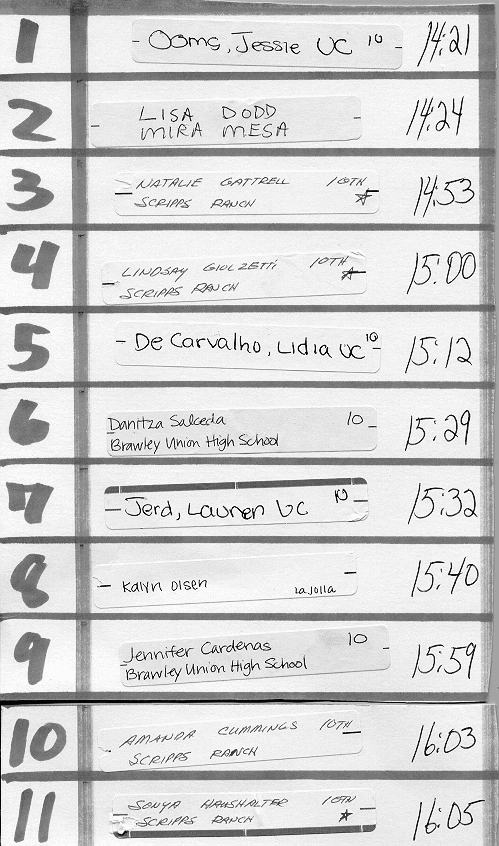 1 Ooms, Jessie UC 10 14:21
2 LISA DODD 14:24
MIRA MESA
3 NATALIE GATTRELL 10TH 14:53
SCRIPPS RANCH ☆
4 LINDSAY GIULZETTI 10TH 15:00
SCRIPPS RANCH ☆
5 De Carvalho, Lidia UC 10 15:12
6 Danitza Salceda 10 15:29
Brawley Union High School
7 Jerd, Lauren UC 10 15:32
8 Kalyn Olsen La Jolla 15:40
9 Jennifer Cardenas 10 15:59
Brawley Union High School
10 AMANDA CUMMINGS 10TH 16:03
SCRIPPS RANCH
11 SONYA HAUSHALTER 10TH 16:05
SCRIPPS RANCH ☆